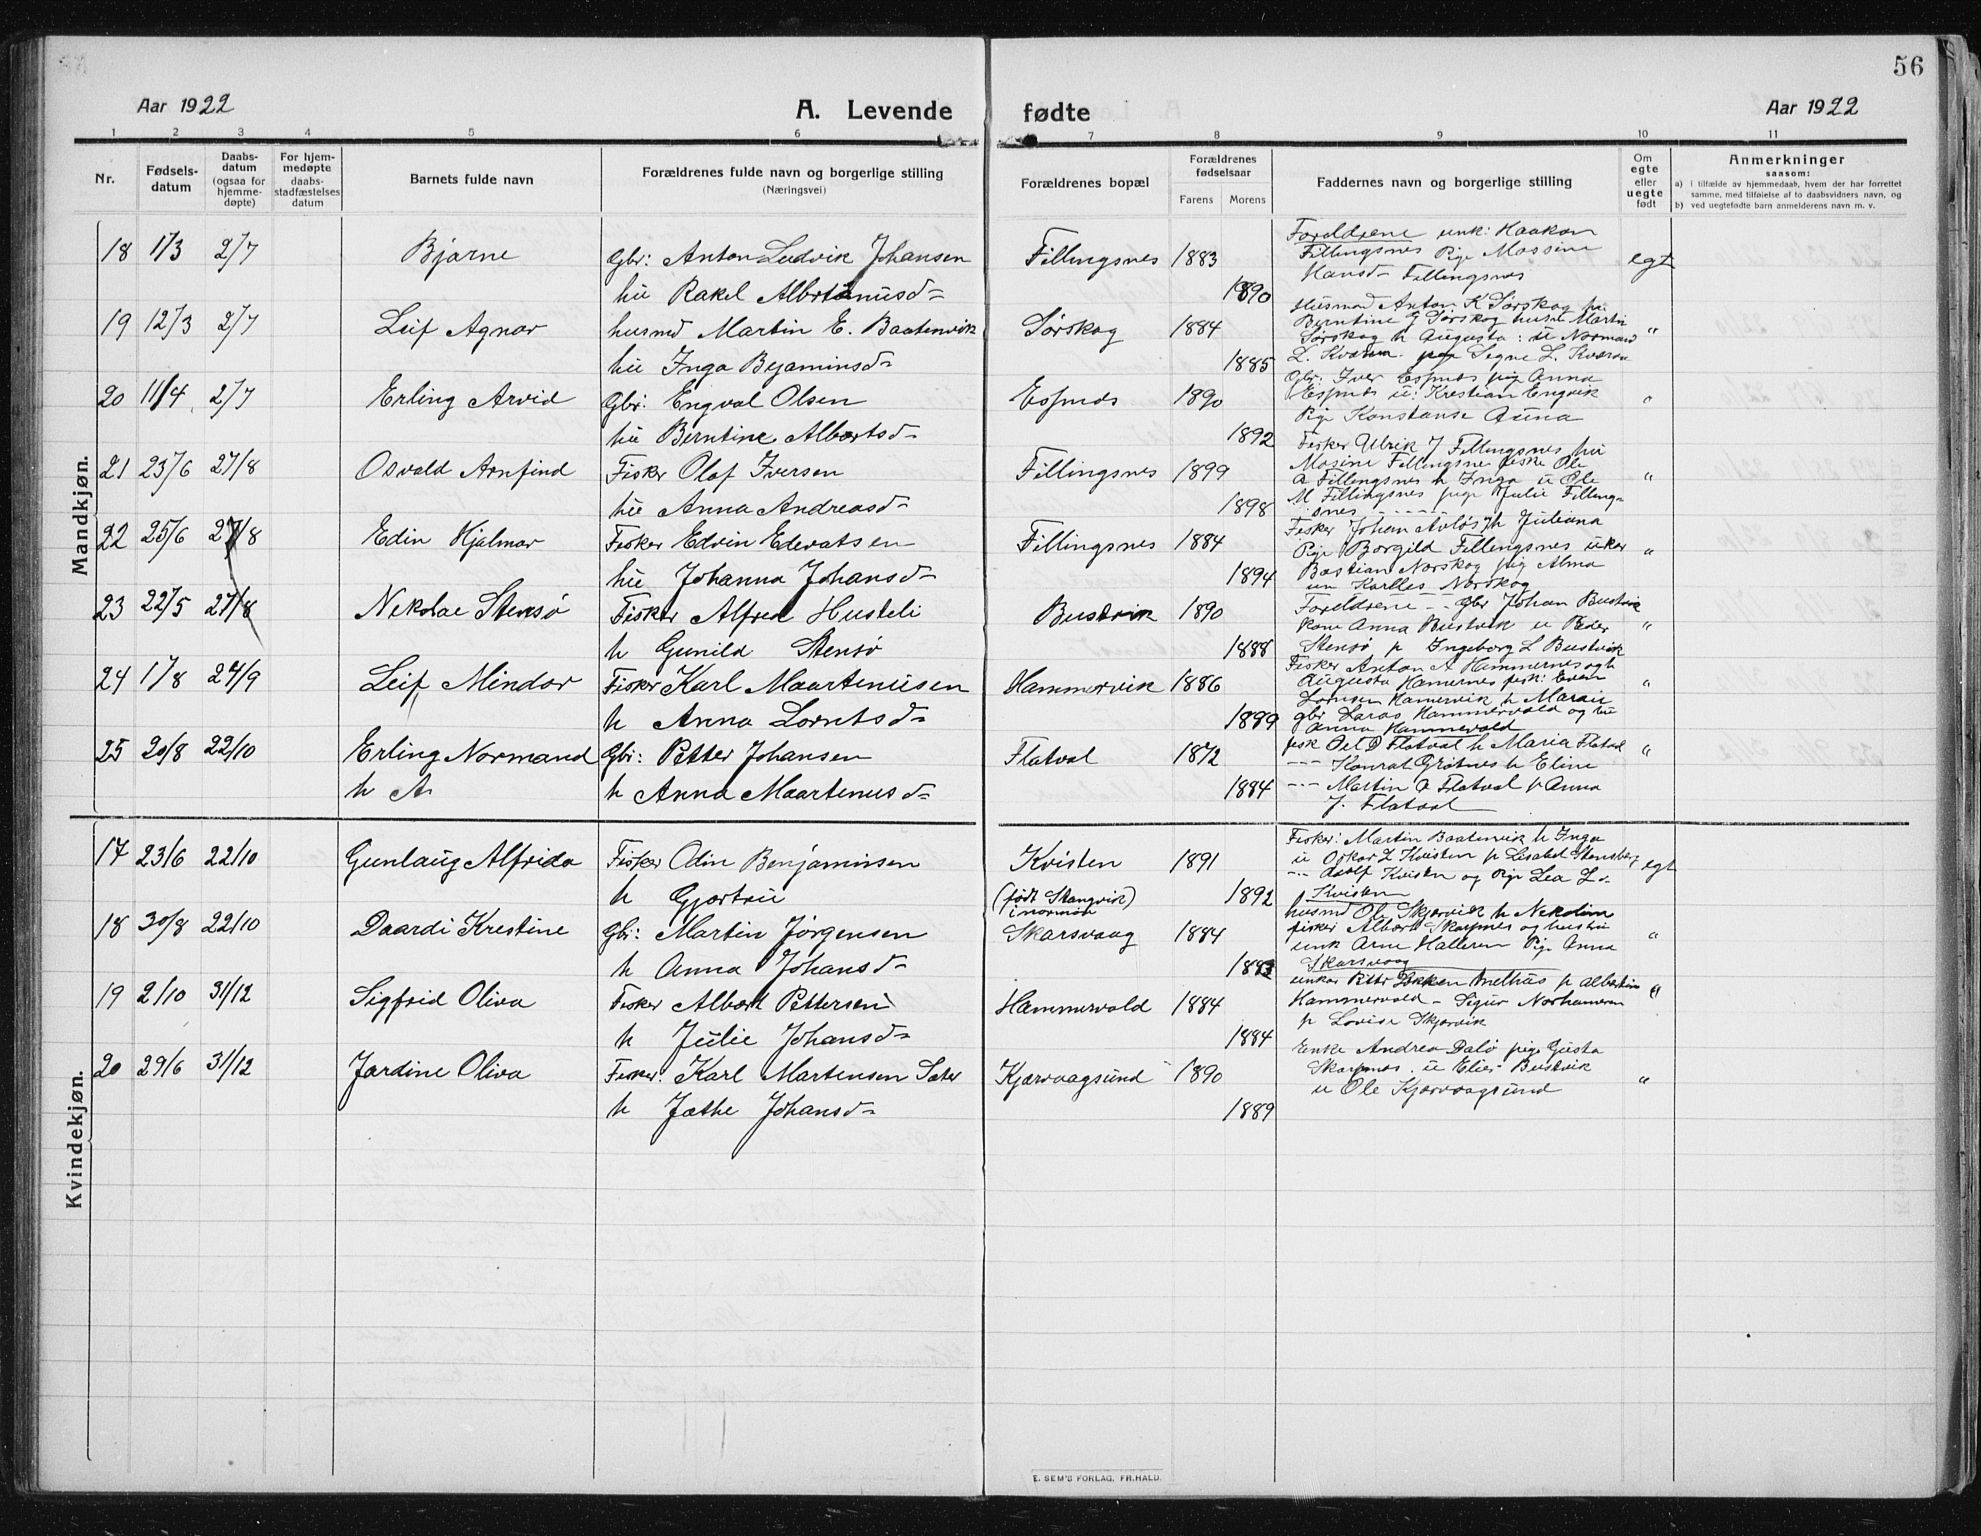 56
Aar 1922
A. Levende fødte
Aar 1922
1 2 3 4 5 6 7 8 9 10 11
Nr.
Fødsels-
datum
Daabs-
datum
(ogsaa for
hjemme-
døpte)
For hjem-
medøpte
daabs-
stadfæstelses
datum
Barnets fulde navn
Forældrenes fulde navn og borgerlige stilling
(Næringsvei)
Forældrenes bopæl
Forældrenes
fødselsaar
Farens Morens
Faddernes navn og borgerlige stilling
Om
egte
eller
uegte
født
Anmerkninger
saasom:
a) i tilfælde av hjemmedaab, hvem der har forrettet
samme, med tilføielse af to daabsvidners navn, og
b) ved uegtefødte barn anmelderens navn m. v.
Mandkjøn.
18 1/3 2/7 Bjarne Gbr: Anton Ludvik Johansen Fillingsnes 1883
hu Rakel Albrtinusd= 1890
Forældrene unk: Haakon
Fillingsnes Pige Massine
Hansd= Fillingsnes
egt
19 12/3 2/7 Leif Agnar husmd Martin E. Baatenvik Sørskog 1884 "
hu Inga Bejaminsd= 1885
Husmd Anton K Sørskog hu
Berntine G Sørskog husm Martin
Sørskog h Augusta: u Normand
L. Kværn pige Signe L. Kværn
20 11/4 2/7 Erling Arvid Gbr: Engval Olsen Espnes 1890 "
hu Berntine Albertsd= 1892
Gbr: Iver Espnes pig Anna
Espnes u: Krestian Engvik
Pige Konstanse Auna
21 23/6 27/8 Osvald Arnfind Fisker Olaf Iversen Fillingsnes 1899 "
hu Anna Andreasd= 1898
Fisker Ulrik J Fillingsnes hu
Masine Fillingsnes fiske Ole
A Fillingsnes h Inga u Ole
M Fillingsnes pige Julie Filling=
snes
22 25/6 27/8 Edin Hjalmar Fisker Edvin Edvatsen Fillingsnes 1884 "
hu Johanna Johansd= 1894
Fisker Johan Avløs h Juliana
Pige Borgild Fillingsnes unkar
Bastian Norskog pig Alma
un Karlles Norskog
23 22/5 27/8 Nekolae Stensø Fisker Alfred Husteli Bustvik 1890 "
h Gunild Stensø 1888
Foreldrene -- Gbr Johan Bustvik
Kone Anna Bustvik u Peder
Stensø p Ingeborg L Bustvik
24 1/8 24/9 Leif Mindor Fisker Karl Maartenusen Hammervik 1886 "
h Anna Lorntsd= 1899
Fisker Anton A Hammernes og h
Augusta Hamernes fisk: Even
Lornsen Hamervik h Maraie
gbr Laras Hammervold og hu
Anna Hammervold
25 20/8 22/10 Erling Normand Gbr: Petter Johansen Flatval 1872 "
h A h Anna Maartenusd= 1884
fisk Oel D Flatval h Maria Flatval
--- Konrat Grøtnes h Eline
--- Martin O Flatval h Anna
J. Flatval
Kvindekjøn.
17 23/6 22/10 Gunlaug Alfrida Fisker Odin Benjaminsen Kvisten 1891 egt
h Gjertrü (født Skangvik)
i normør 1892
Fisker: Martin Baatenvik h Inga
u Oskar L Kvisten p Lisabet Stensberg
--- Adolf Kvisten og Pige Lea L=
Kvisten
18 30/8 22/10 Daardi Krestine Gbr: Martin Jørgensen Skarsvaag 1884 "
h Anna Johansd= 1883
husmd Ole Skjærvik h Nekolina
fisker Albert Skarpnes og hustru
unk Arne Halleren Pige Anna
Skarsvaag
19 2/10 31/12 Sigfrid Oliva Fisker Albert Pettersen Hammervold 1884 "
h Julie Johansd= 1884
unkar Petter Løkken Melhus p Albertine
Hammervold - Sigur Norhameren
p Lovise Skjærvik
20 29/6 31/12 Jardine Oliva Fisker: Karl Martensen Sæter Kjærvaagsund 1890 "
h Jæthe Johansd= 1889
Enke Andrea Dalø pige Gusta
Skarpnes. u Elies Bustvik
u Ole Kjærvaagsund
E. SEM'S FORLAG, FR.HALD.